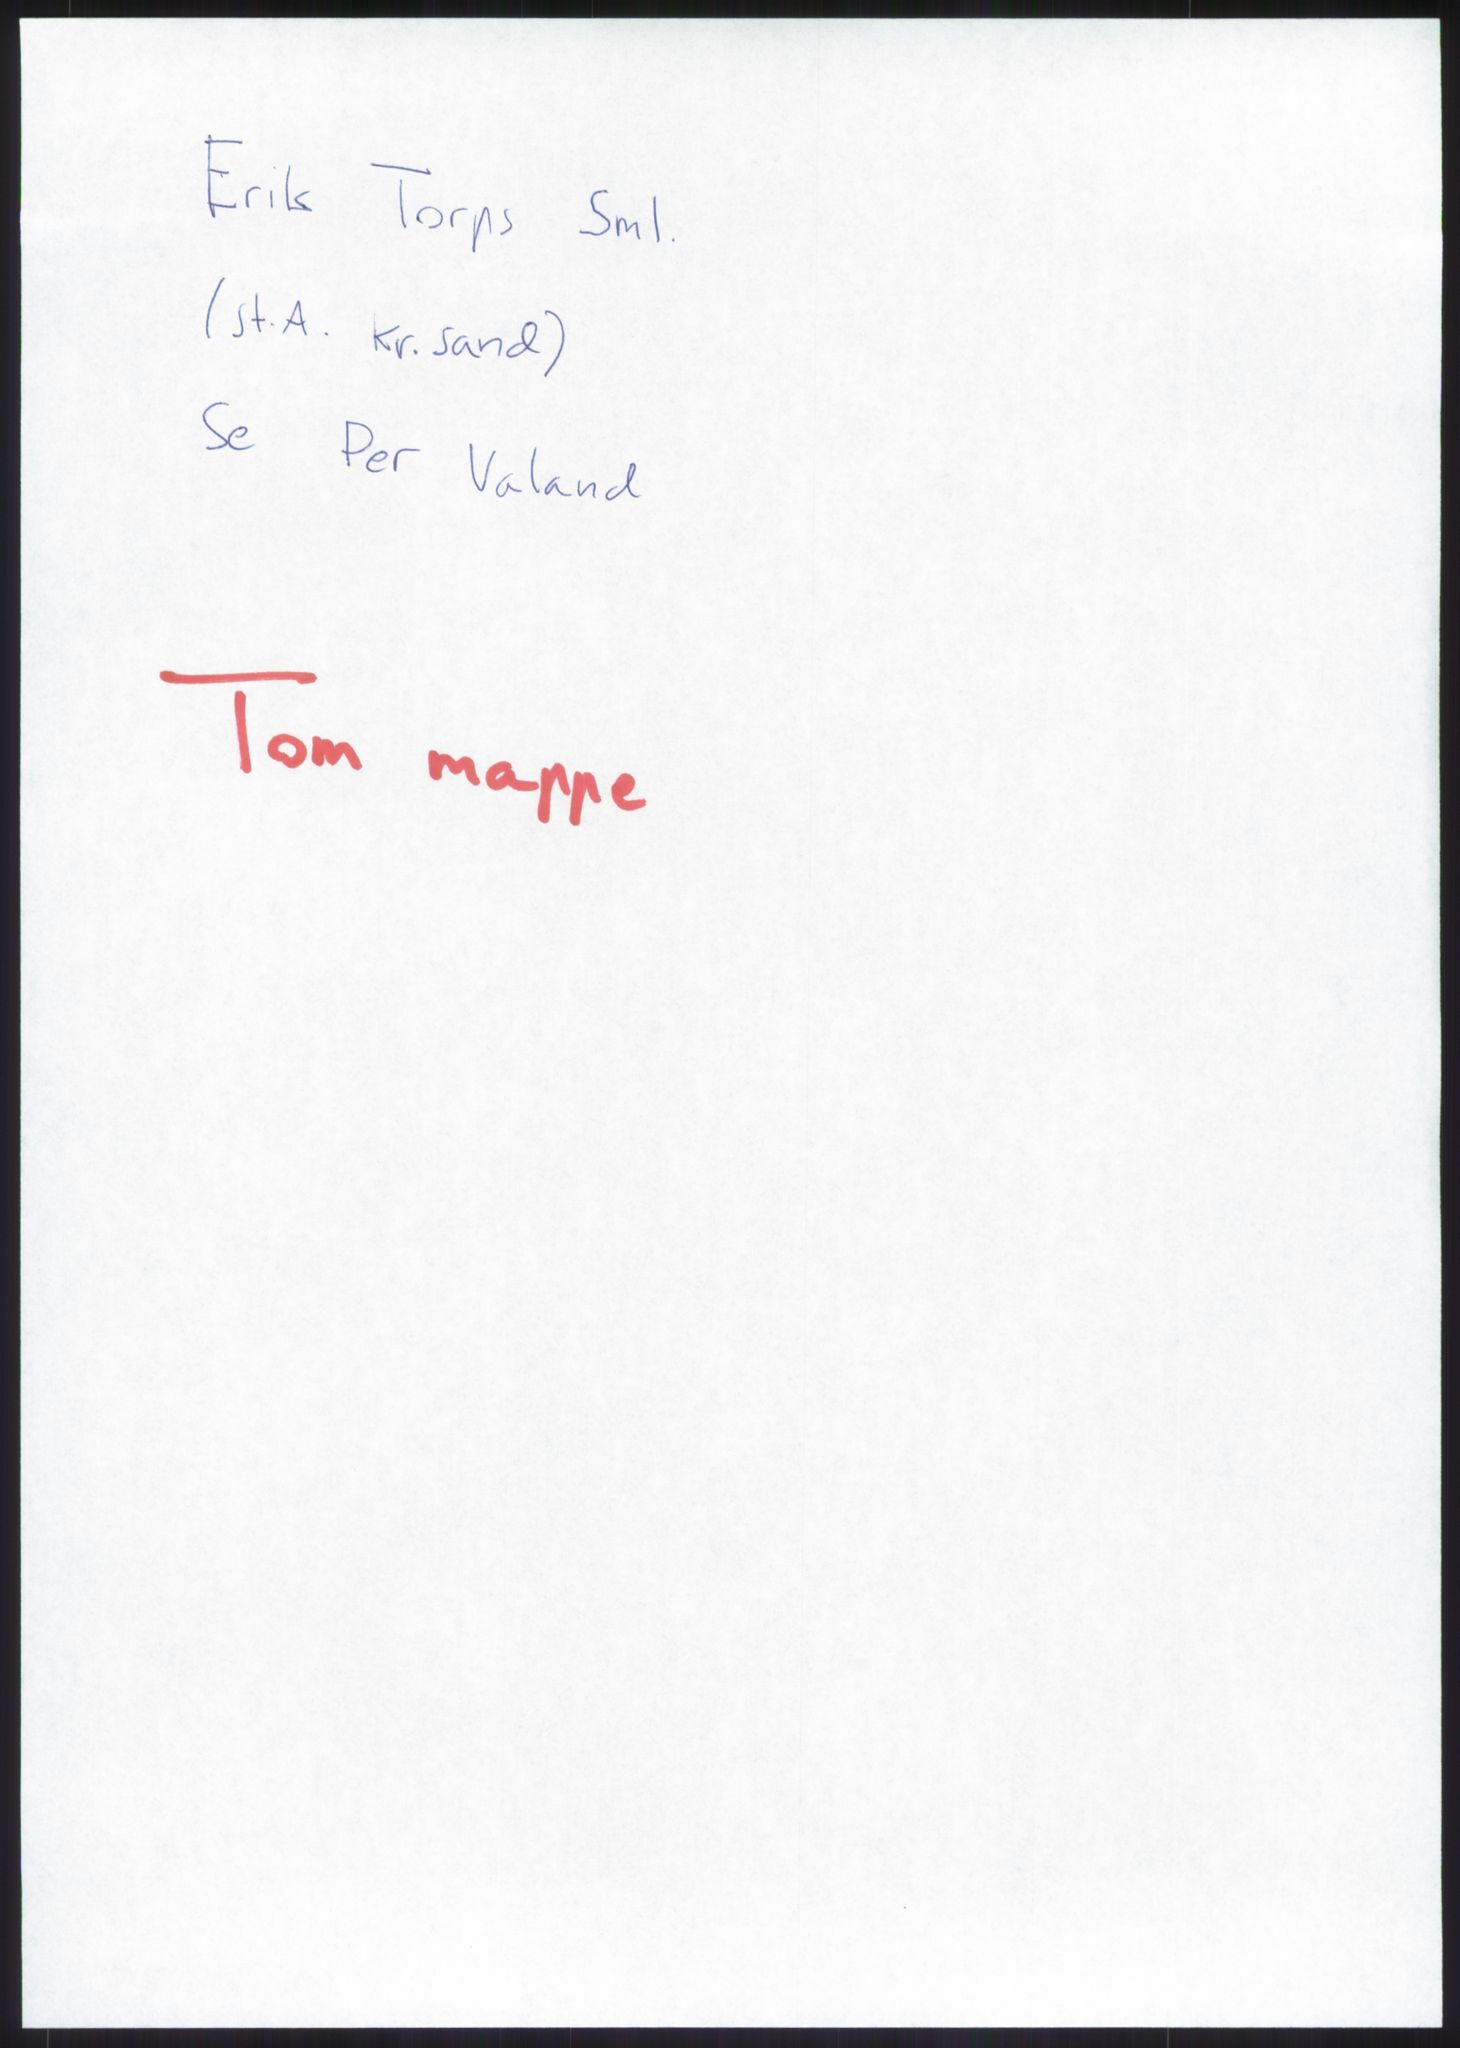 Erik Torps Sml.
(st.A. Kr.sand)
Se Per Valand
Tom mappe